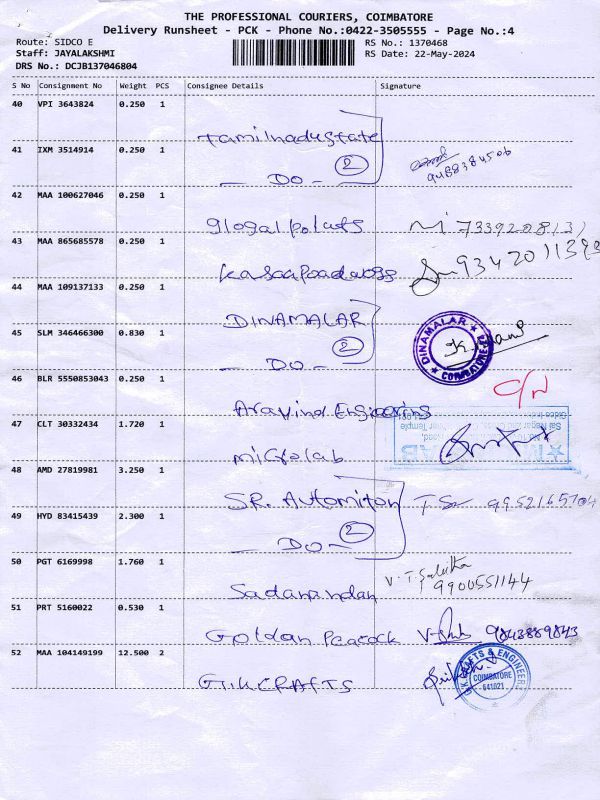 THE PROFESSIONAL COURIERS, COIMBATORE
Delivery Runsheet - PCK - Phone No.:0422-3505555 - Page No.:4
Route: SIDCO E
RS No.: 1370468
Staff: JAYALAKSHMI
RS Date: 22-May-2024
DRS No.: DCJB137046804
S No Consignment No Weight PCS Consignee Details Signature
40 VPI 3643824 0.250 1
Tamilnadustate
41 IXM 3514914 0.250 1
2
DO
9488384506
42 MAA 100627046 0.250 1
43 MAA 865685578 0.250 1
9342011393
44 MAA 109137133 0.250 1
DINAMALAR
DINAMALAR
COIMBATORE
45 SLM 346466300 0.830 1
2
DO
46 BLR 5550853043 0.250 1
Aravind Engineering
47 CLT 30332434 1.720 1
microlab
48 AMD 27819981 3.250 1
SR. Automiton
9952165704
49 HYD 83415439 2.300 1
2
DO
50 PGT 6169998 1.760 1
Sadanandan
9900551144
51 PRT 5160022 0.530 1
Goldan Peacock
9843889843
52 MAA 104149199 12.500 2
G.K CRAFTS
G.K CRAFTS & ENGINEERS
COIMBATORE
641021